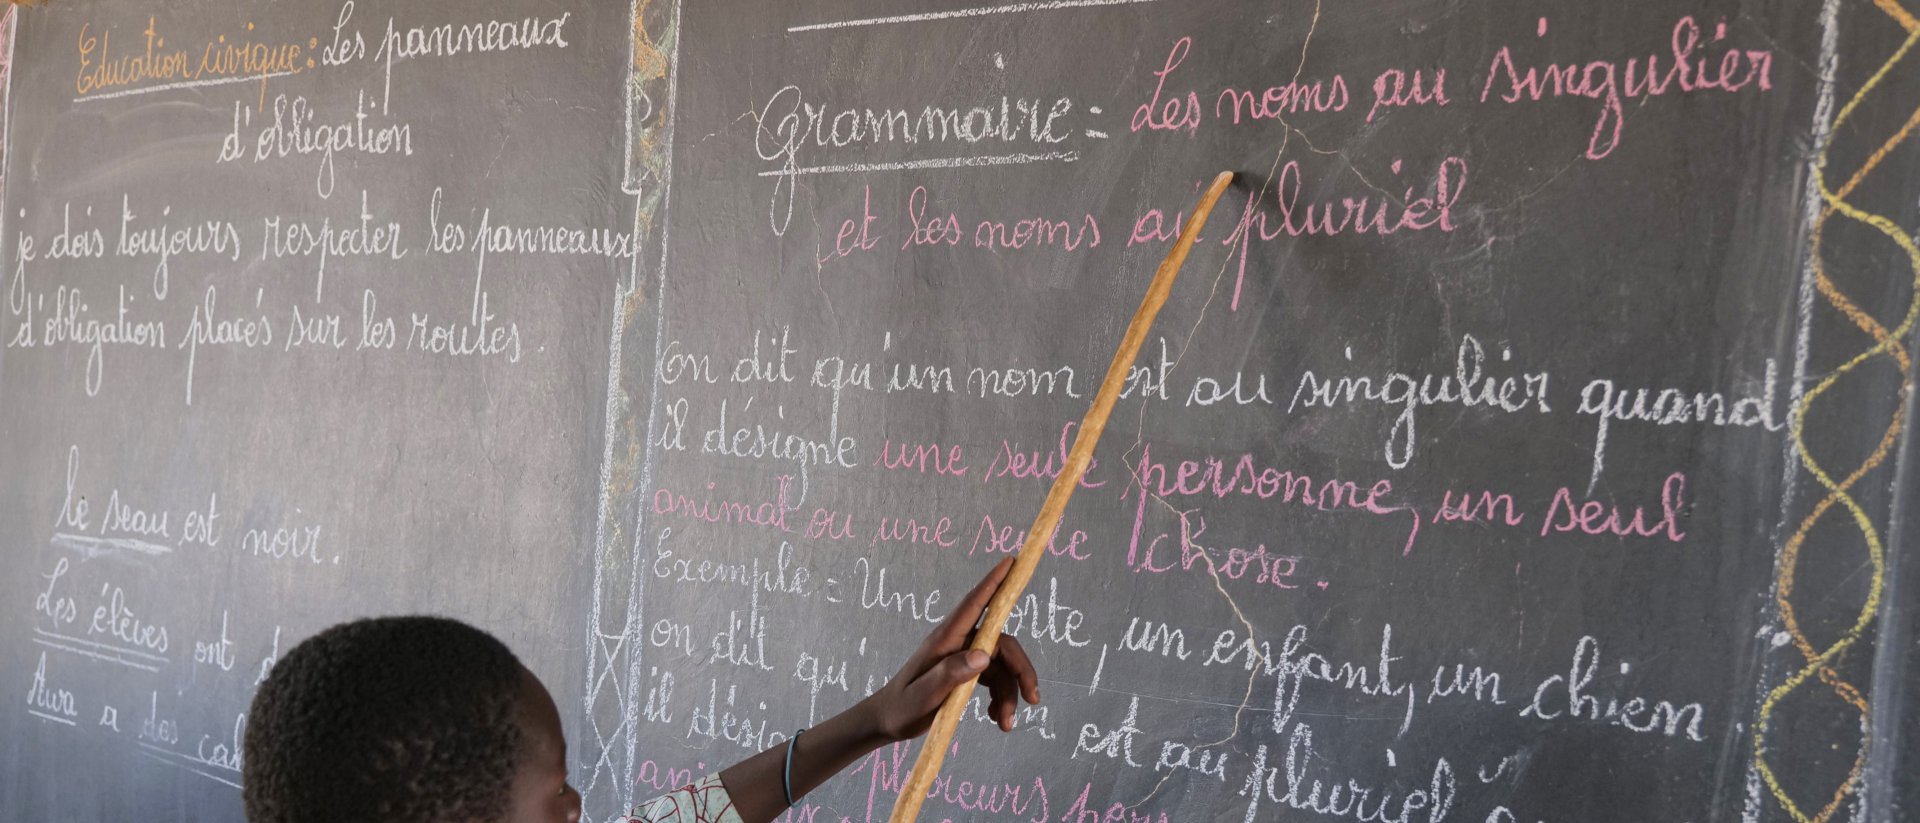 Education civique : Les panneaux
d'obligation
je dois toujours respecter les panneaux
d'obligation placés sur les routes.
le seau est noir.
Les élèves ont
Awa a des
Grammaire = Les noms au singulier
et les noms au pluriel
On dit qu'un nom est au singulier quand
il désigne une seule personne, un seul
animal ou une seule chose.
Exemple = Une porte, un enfant, un chien
on dit qu'un nom est au pluriel
il désig
plusieurs pers